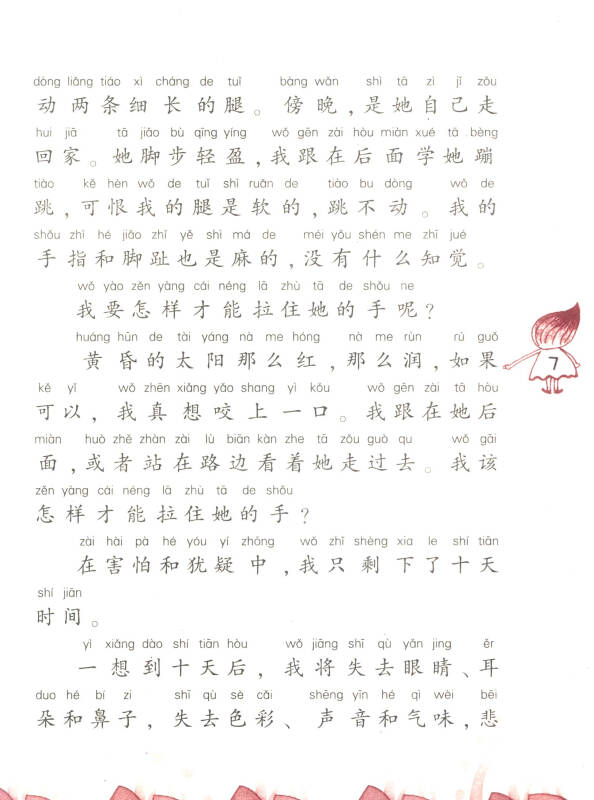 dòng liǎng tiáo xì cháng de tuǐ bàng wǎn shì tā zì jǐ zǒu
动两条细长的腿。傍晚,是她自己走
huí jiā tā jiǎo bù qīng yíng wǒ gēn zài hòu miàn xué tā bèng
回家。她脚步轻盈,我跟在后面学她蹦
tiào kě hèn wǒ de tuǐ shì ruǎn de tiào bu dòng wǒ de
跳,可恨我的腿是软的,跳不动。我的
shǒu zhǐ hé jiǎo zhǐ yě shì má de méi yǒu shén me zhī jué
手指和脚趾也是麻的,没有什么知觉。
wǒ yào zěn yàng cái néng lā zhù tā de shǒu ne
我要怎样才能拉住她的手呢?
huáng hūn de tài yáng nà me hóng nà me rùn rú guǒ
黄昏的太阳那么红,那么润,如果
kě yǐ wǒ zhēn xiǎng yǎo shang yì kǒu wǒ gēn zài tā hòu
可以,我真想咬上一口。我跟在她后
miàn huò zhě zhàn zài lù biān kàn zhe tā zǒu guò qu wǒ gāi
面,或者站在路边看着她走过去。我该
zěn yàng cái néng lā zhù tā de shǒu
怎样才能拉住她的手?
zài hài pà hé yóu yí zhōng wǒ zhǐ shèng xia le shí tiān
在害怕和犹疑中,我只剩下了十天
shí jiān
时间。
yì xiǎng dào shí tiān hòu wǒ jiāng shī qù yǎn jing ěr
一想到十天后,我将失去眼睛、耳
duo hé bí zi shī qù sè cǎi shēng yīn hé qì wèi bēi
朵和鼻子,失去色彩、声音和气味,悲
7